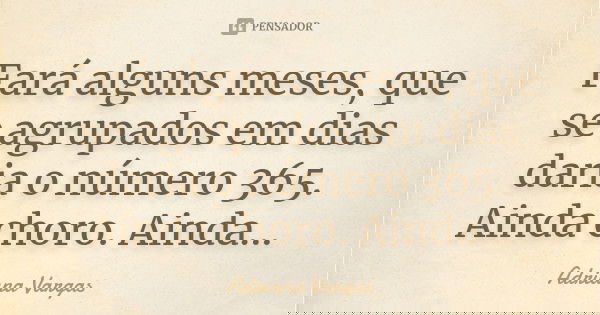 PENSADOR
Fará alguns meses, que
se agrupados em dias
daria o número 365.
Ainda choro. Ainda...
Adriana Vargas